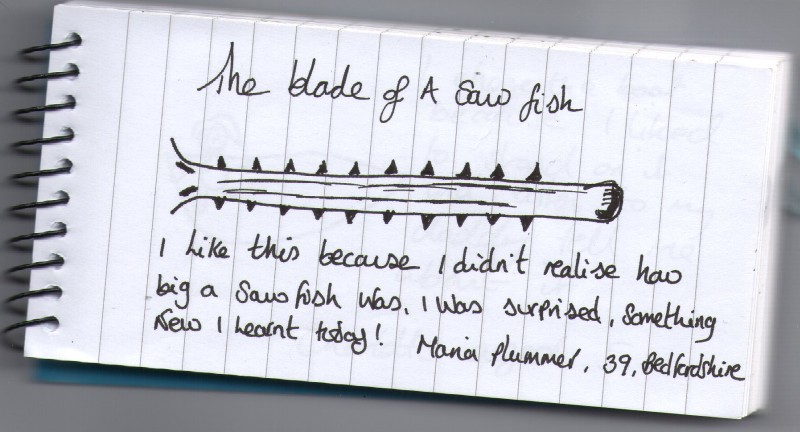 The blade of A Saw fish
I Like this because I didn't realise how
big a Saw fish was. I was surprised. Something
New I Learnt today! Maria Plummer, 39, Bedfordshire